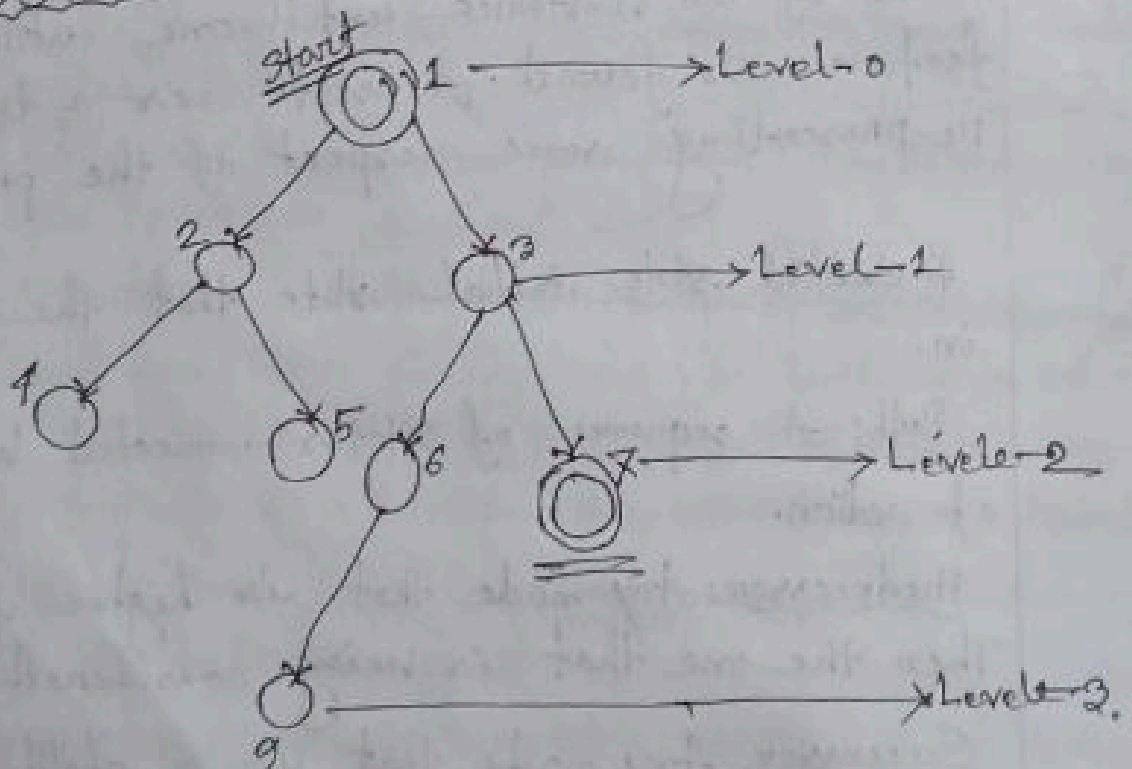 Start
1 → Level-0
2
3 → Level-1
4
5
6
7 → Levele-2
9 → Levele-3.